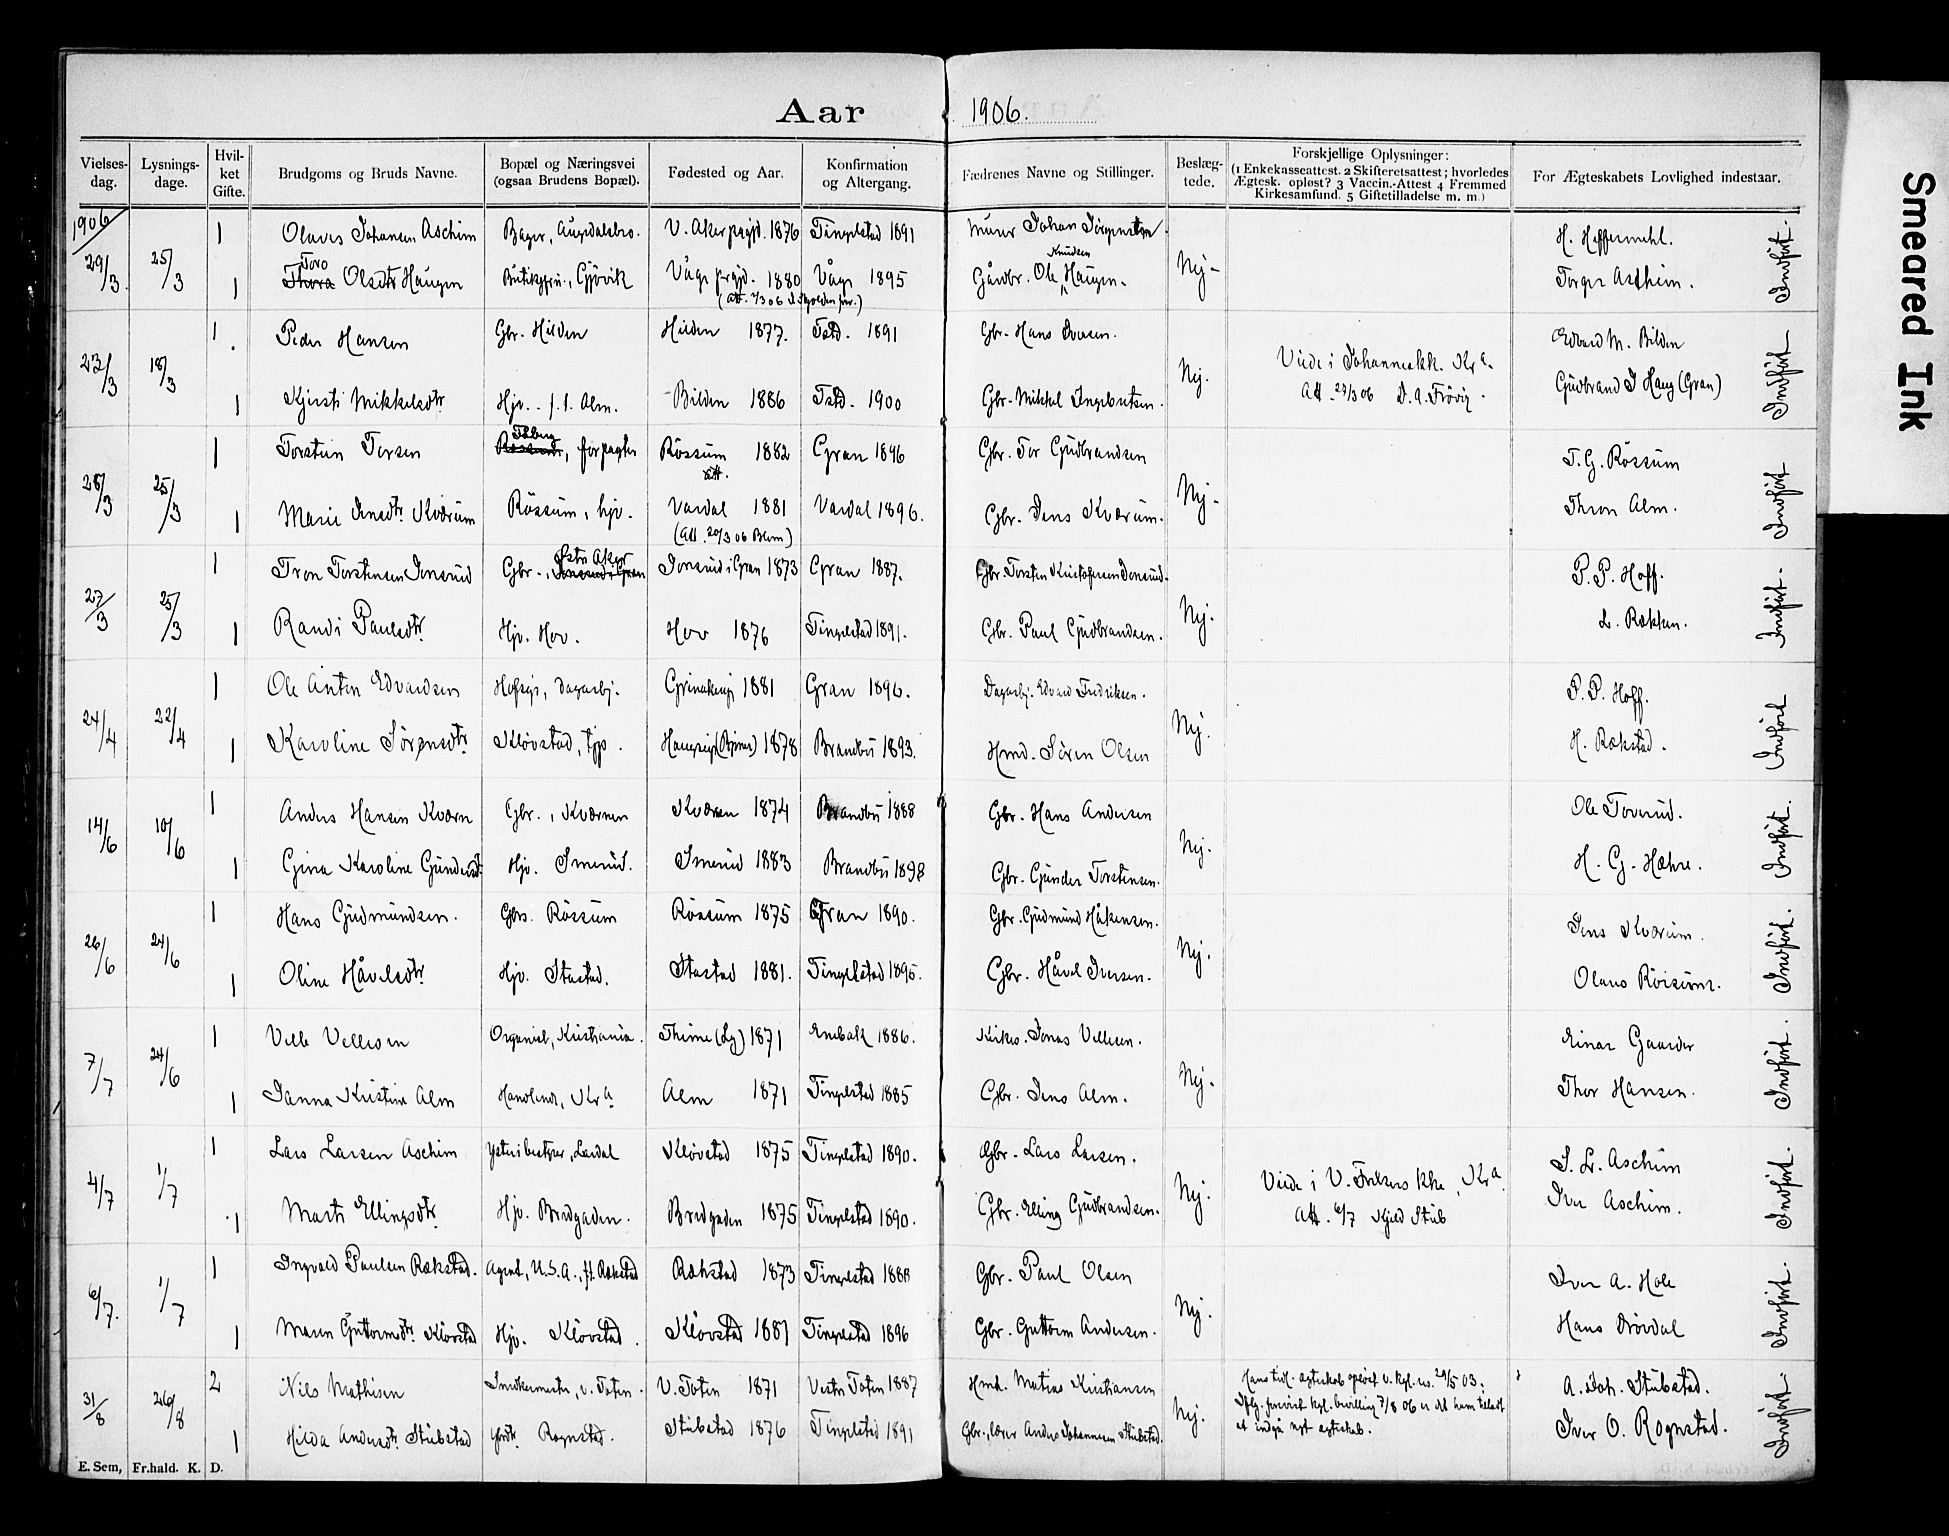 Aar 1906.
Vielses-dag. Lysnings-dage. Hvil-ket Gifte. Brudgoms og Bruds Navne. Bopæl og Næringsvei (ogsaa Brudens Bopæl). Fødested og Aar. Konfirmation og Altergang. Fædrenes Navne og Stillinger. Beslæg-tede. Forskjellige Oplysninger: (1 Enkekasseattest. 2 Skifteretsattest; hvorledes Ægtesk. opløst? 3 Vaccin.-Attest 4 Fremmed Kirkesamfund. 5 Giftetilladelse m. m.) For Ægteskabets Lovlighed indestaar.
1906
1 Olaves Johansen Aschim Bager, Augedalsbro. V. Aker prgjd. 1876 Tingelstad 1891 Murer Johan Jörgensen H. Heffermehl.
29/3. 25/3 Nej- Indført.
Toro Knudsen
1 Thora Olsdtr Haugen Butikgfrn., Gjövik Vågø prgjd. 1880 Vågø 1895 Gårdbr. Ole Haugen. Torger Aschim.
(Att. 7/3 06)
1 Peder Hansen Gbr. Hilden Hilden 1877. Tstd. 1891 Gbr. Hans Iversen. Edvard M. Bilden
23/3 18/3 Nej. Viede i Johanneskk. Kra. Indført
1 Kjersti Mikkelsdtr Hjv. - f. t. Alm. Bilden 1886 Tstd. 1900 Gbr. Mikkel Ingebretsen. Att. 27/3 06 D. A. Frövig. Gudbrand J Haug (Gran)
1 Torstein Torsen Rössum, forpagter Rössum 1882 Gran 1896 Gbr. Tor Gudbrandsen T. G. Røssum
28/3 25/3 Att. Nej. Indført
1 Marie Jensdtr. Kværum Røssum, hjv. Vardal 1881 Vardal 1896. Gbr. Jens Kværum. Thron Alm.
(Att. 20/3 06 Blom)
Østre Aker
1 Tron Torstensen Jonsrud Gbr., Jonsrud i Gran Jonsrud i Gran 1873 Gran 1887. Gbr. Torsten Kristofersen Jonsrud. P. P. Hoff.
27/3 25/3 Nej. Indført.
1 Randi Paulsdtr Hjv. Hov. Hov 1876 Tingelstad 1891. Gbr. Paul Gudbrandsen. L. Rækken.
1 Ole Anton Edvardsen Hofseje, dagarbj. Grinakereje 1881 Gran 1896. Dagarbj. Edvard Fredriksen. P. P. Hoff.
24/4 22/4 Nej. Indført
1 Karoline Sørensdtr. Kløvstad, tjp. 1878 Brandbu 1893. Hmd. Søren Olsen H. Rækstad.
1 Anders Hansen Kværn Gbr., Kværnen Kværnen 1874 Brandbu 1888 Gbr. Hans Andersen Ole Toverud.
14/6 10/6 Nej. Indført.
1 Gina Karoline Gundersdtr. Hjv. Smerud. Smerud 1883 Brandbu 1898 Gbr. Gunder Torstensen. H. G. Hæhre.
1 Hans Gudmundsen. Gbrs. Røssum Røssum 1875 Gran 1890. Gbr. Gudmund Håkensen. Jens Kværum.
26/6 24/6 Nej. Indført.
1 Oline Håvelsdtr Hjv. Stastad. Stastad 1881. Tingelstad 1895. Gbr. Håvel Iversen. Olaus Röisum.
1 Velle Vellesen Organist, Kristiania. 1871 Enebak 1886. Kirkes. Jonas Vellesen. Einar Gaarder
7/7 24/6 Nej. Indført.
1 Janna Kristine Alm Handlend, Kra Alm 1871 Tingelstad 1885 Gbr. Jens Alm. Thor Hansen.
1 Lars Larsen Aschim Ysteribestyrer, Lærdal Kløvstad 1875 Tingelstad 1890. Gbr. Lars Larsen. J. Lr. Aschim
4/7 1/7 Nej. Viede i V. Frelsers Kke, Kra. Indført.
1 Marthe Ellingsdtr. Hjv. Bredgaden. Bredgaden 1875 Tingelstad 1890. Gbr. Elling Gudbrandsen. Att. 6/7 Kjeld Stub Iver Aschim.
1 Ingvald Paulsen Rækstad. Agent, U.S.A., ft. Rækstad Rækstad 1873 Tingelstad 1888 Gbr. Paul Olsen Iver A. Hole
6/7. 1/7 Nej. Indført.
1 Maren Guttormsdtr. Kløvstad Hjv. Kløvstad. Kløvstad 1881 Tingelstad 1896 Gbr. Guttorm Andersen. Hans Drövdal
2 Nils Mathisen Snedkermester, v. Toten. V. Toten 1871 Vestre Toten 1887 Hmd. Matias Kristiansen Hans tidl. ægteskab opløst v. kgl. res. 29/5 03. A. Joh. Stubstad.
31/8 26/8 Nej. Iflg. kgl. bevilling 7/8 06 er det ham tilladt Indført
1 Hilda Andersdtr. Stubstad Gbrdtr. Rognstad. Stubstad 1876 Tingelstad 1891 Gbr., lærer Anders Johannesen Stubstad. at indgå nyt ægteskab. Iver O. Rognstad.
E. Sem, Fr.hald. K. D.
Smeared Ink